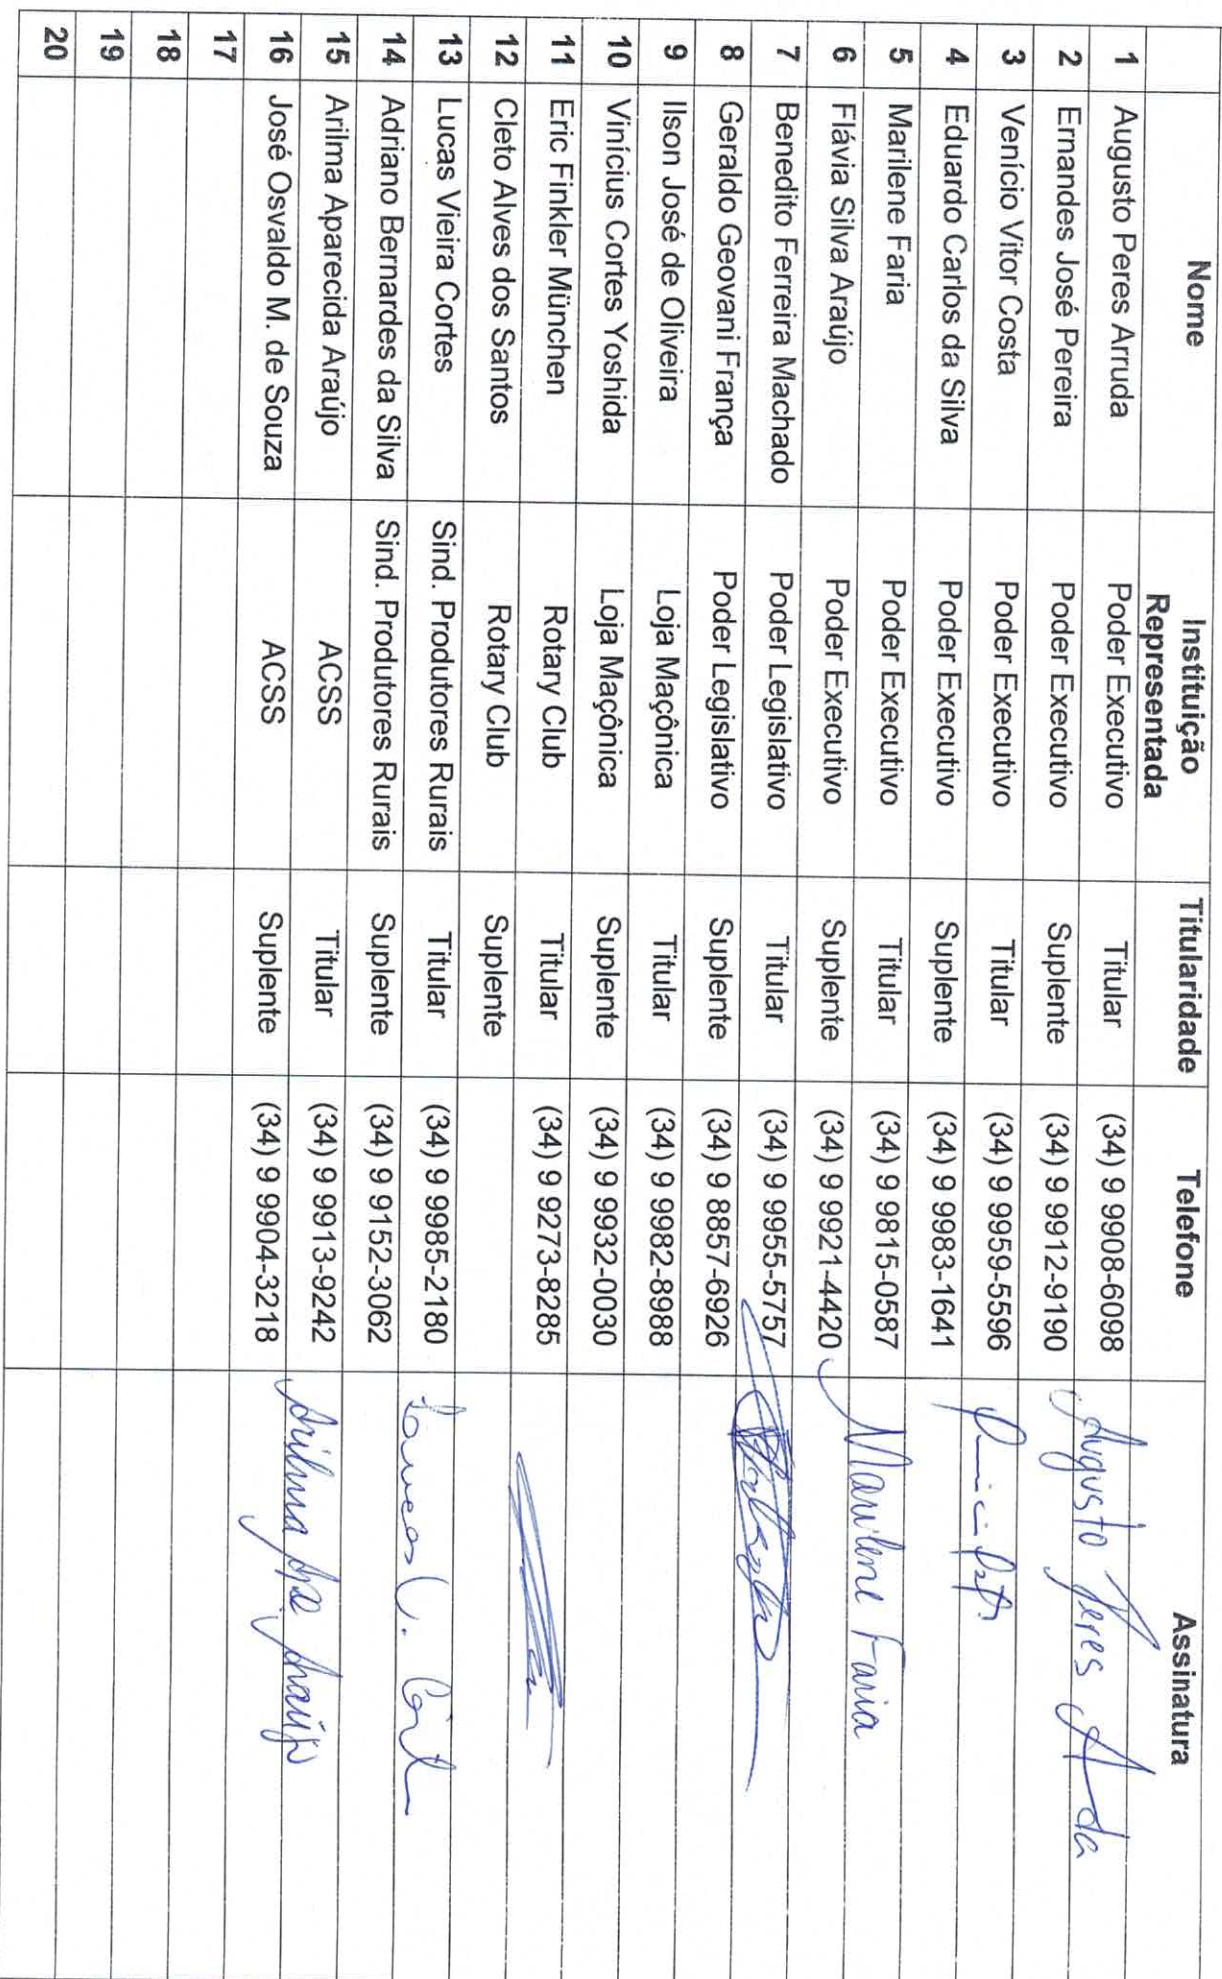 Nome Instituição Representada Titularidade Telefone Assinatura
1 Augusto Peres Arruda Poder Executivo Titular (34) 9 9908-6098 Augusto Peres
2 Ernandes José Pereira Poder Executivo Suplente (34) 9 9912-9190
3 Venício Vitor Costa Poder Executivo Titular (34) 9 9959-5596
4 Eduardo Carlos da Silva Poder Executivo Suplente (34) 9 9983-1641
5 Marilene Faria Poder Executivo Titular (34) 9 9815-0587 Marilene Faria
6 Flávia Silva Araújo Poder Executivo Suplente (34) 9 9921-4420
7 Benedito Ferreira Machado Poder Legislativo Titular (34) 9 9955-5757
8 Geraldo Geovani França Poder Legislativo Suplente (34) 9 8857-6926
9 Ilson José de Oliveira Loja Maçônica Titular (34) 9 9982-8988
10 Vinícius Cortes Yoshida Loja Maçônica Suplente (34) 9 9932-0030
11 Eric Finkler München Rotary Club Titular (34) 9 9273-8285
12 Cleto Alves dos Santos Rotary Club Suplente
13 Lucas Vieira Cortes Sind. Produtores Rurais Titular (34) 9 9985-2180
14 Adriano Bernardes da Silva Sind. Produtores Rurais Suplente (34) 9 9152-3062
15 Arilma Aparecida Araújo ACSS Titular (34) 9 9913-9242 Arilma Ap. Araújo
16 José Osvaldo M. de Souza ACSS Suplente (34) 9 9904-3218
17
18
19
20